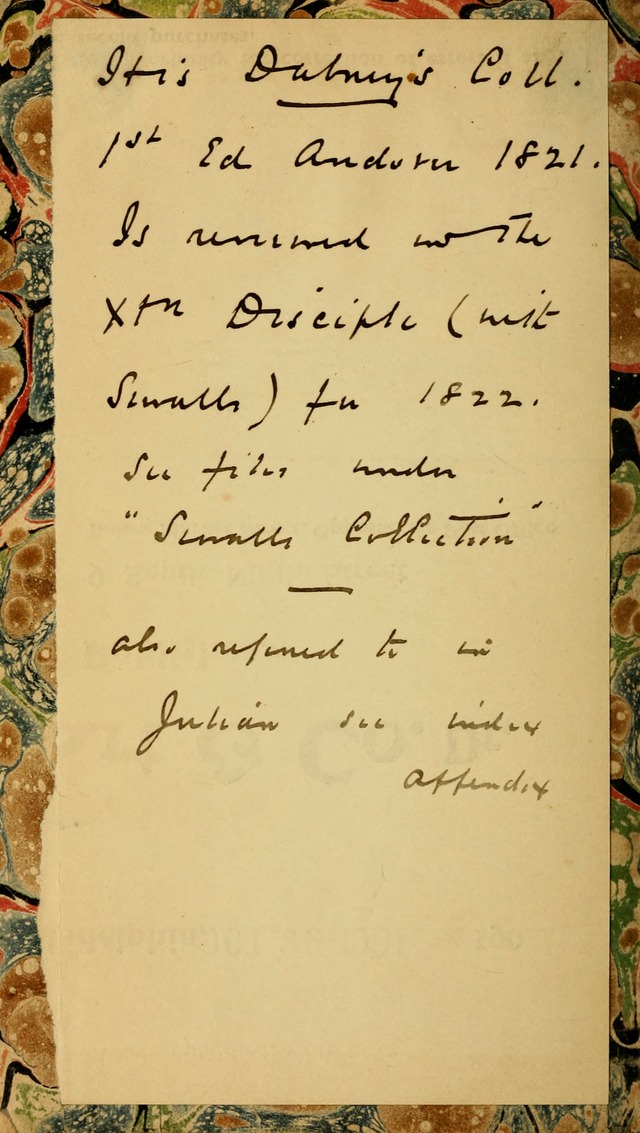 It is Dabney's Coll.
1st Ed Andover 1821.
Is reviewed in the
Xtn Disciple (with
Sewalls) for 1822.
See files under
"Sewalls Collection"
also referred to in
Julian see index
Appendix